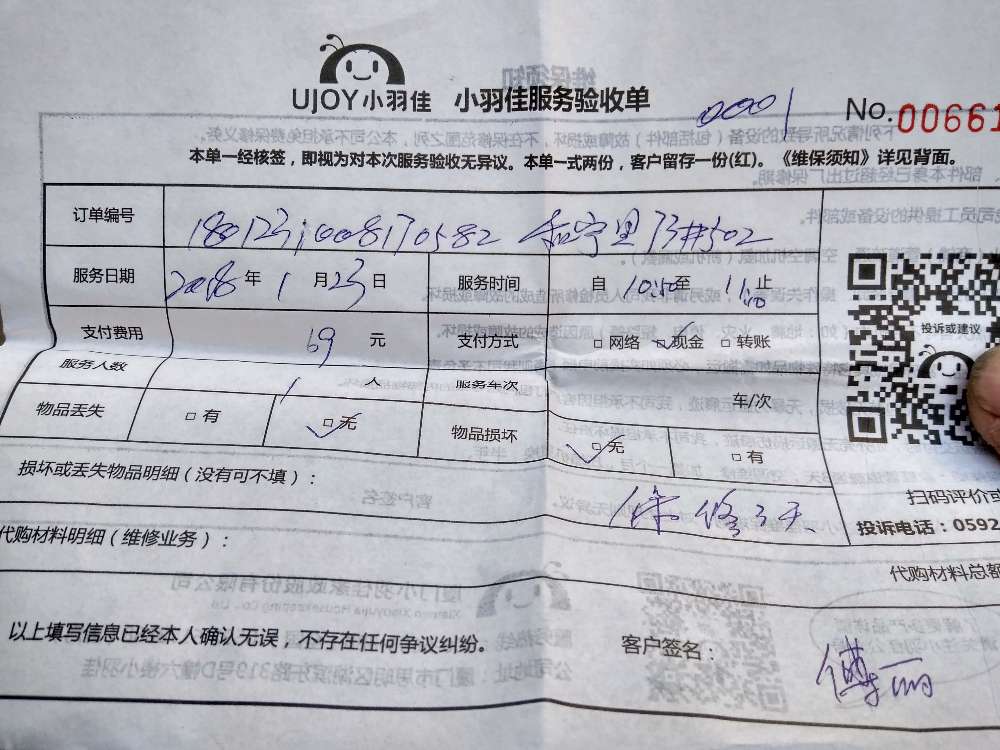 UJOY小羽佳 小羽佳服务验收单 0001 No.00661
本单一经核签，即视为对本次服务验收无异议。本单一式两份，客户留存一份(红)。《维保须知》详见背面。
订单编号 1801231008170582 和宁里73#502
服务日期 2018年1月23日 服务时间 自10:50至11:10止
支付费用 69元 支付方式 □网络 □现金 □转账
服务人数 1人 服务车次 车/次
物品丢失 □有 □无 物品损坏 □无 □有
投诉或建议
损坏或丢失物品明细（没有可不填）：
保修3天
扫码评价或
投诉电话：0592
代购材料明细（维修业务）：
代购材料总额
以上填写信息已经本人确认无误，不存在任何争议纠纷。 客户签名： 傅丽